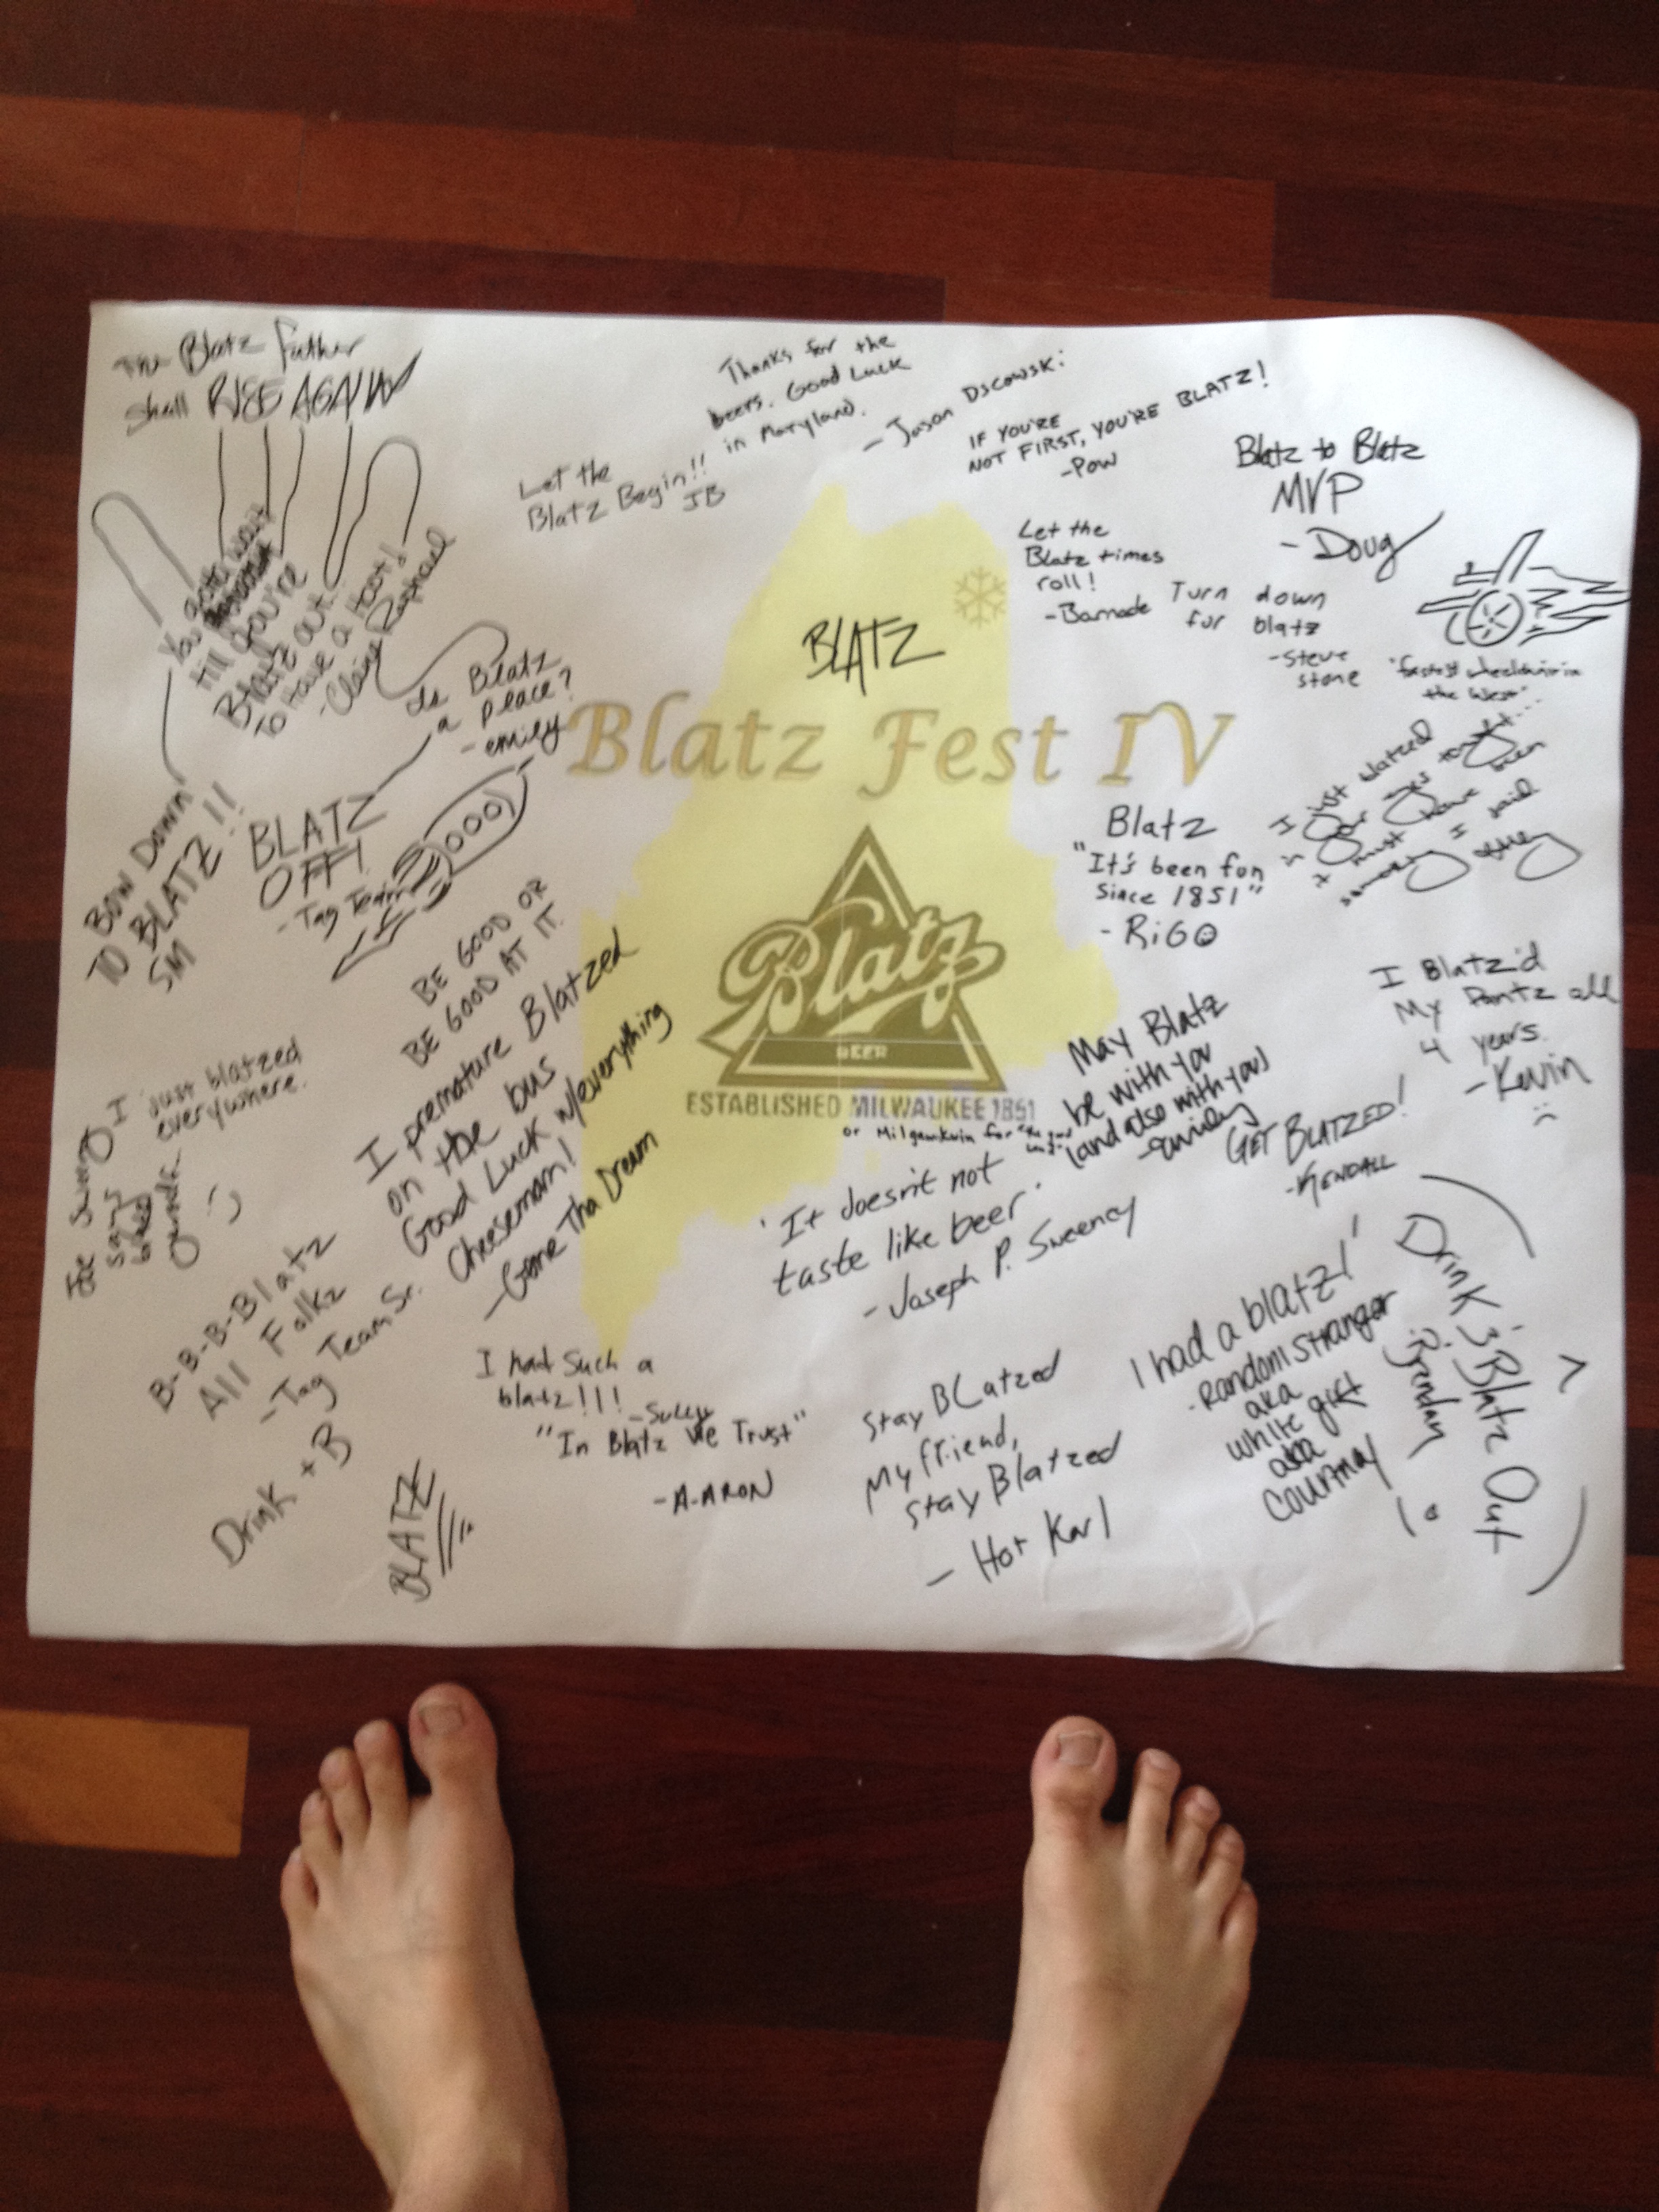 The Blatz Father
Shall RISE AGAIN
Thanks for the
beers. Good Luck
in Maryland.
- Jason
Let the
Blatz Begin!!
JB
IF YOU'RE
NOT FIRST, YOU'RE BLATZ!
-POW
Blatz to Blatz
MVP
- Doug
Let the
Blatz times
roll!
Turn down
for blatz
-Steve
stone
the West"
You
till you're
Blatz out.
To Have a toot!
-Claire Raphael
Is Blatz
a peace?
-emily
BLATZ
Blatz Fest IV
BOW DOWN
TO BLATZ!!
SM
BLATZ
OFF!
-Tag Team
Blatz
"It's been fun
Since 1851"
- RiGO
I just blatzed
must have been
I said
BE GOOD OR
BE GOOD AT IT.
Blatz
BEER
ESTABLISHED MILWAUKEE 1851
I Blatz'd
My Pantz all
4 years.
-Kevin
I just blatzed
everywhere.
says
I premature Blatzed
on the bus
Good Luck w/everything
Cheeseman!
-Gone Tha Dream
May Blatz
be with you
(and also with you)
GET BLATZED!
-KENDALL
"It doesn't not
taste like beer".
- Joseph P. Sweeney
B-B-B-Blatz
All Folkz
-Tag Team Sr.
I had Such a
blatz!!!
-Sully
"In Blatz We Trust"
-A-ARON
Stay BLatzed
My friend,
Stay Blatzed
- Hot Karl
I had a blatz!
-Random stranger
aka
white gift
aka
Courtnay
Drink 3 Blatz Out
Brendan
Drink + B
BLATZ